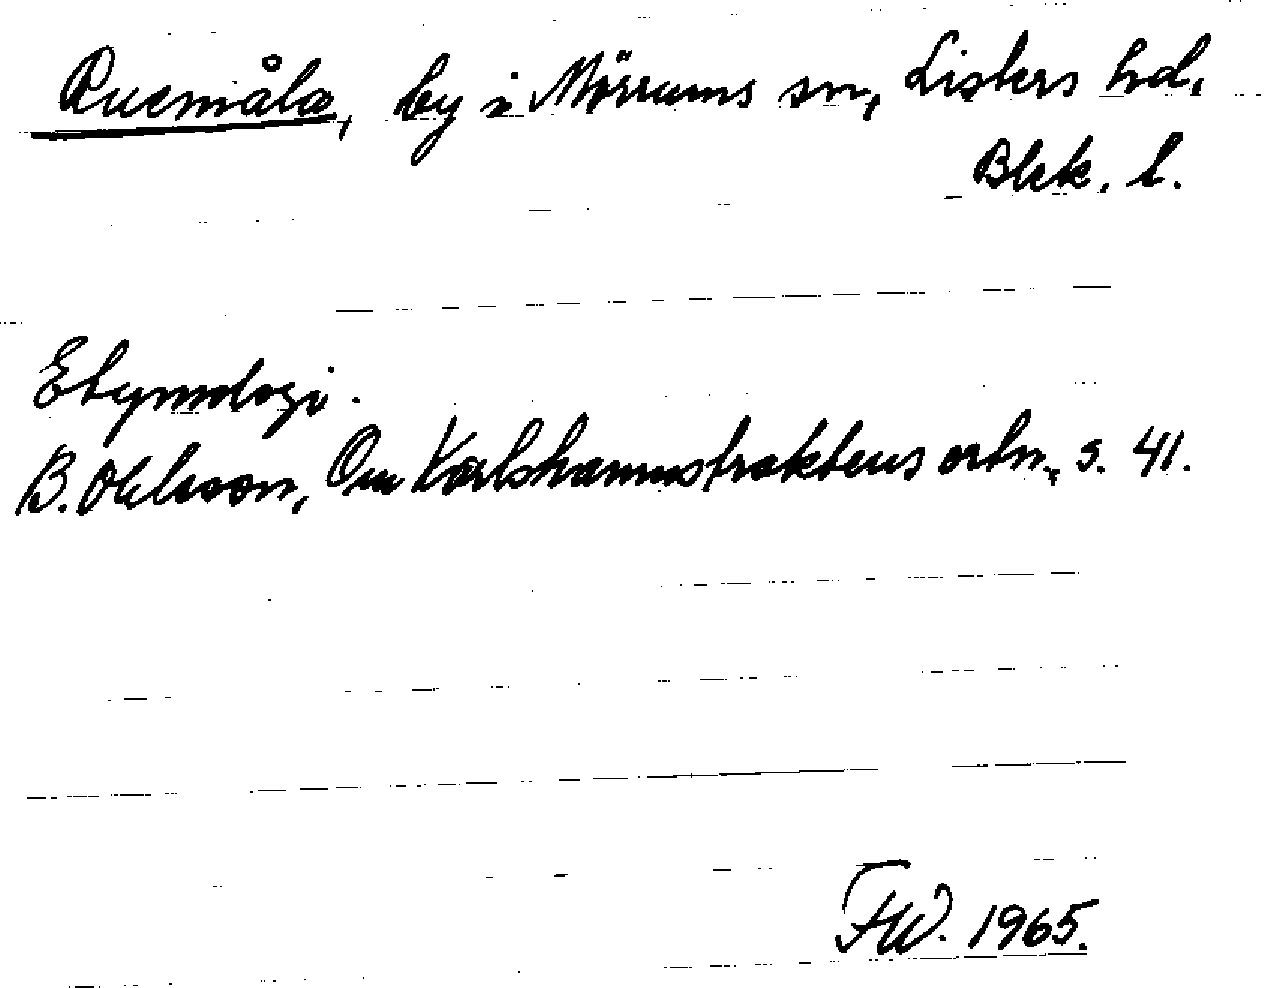 Ruemåla, by i Mörrums sn, Listers hd,
Blek. l.
Etymologi.
B. Ohlsson, Om Karlshamnstraktens ortn., s. 41.
FW. 1965.